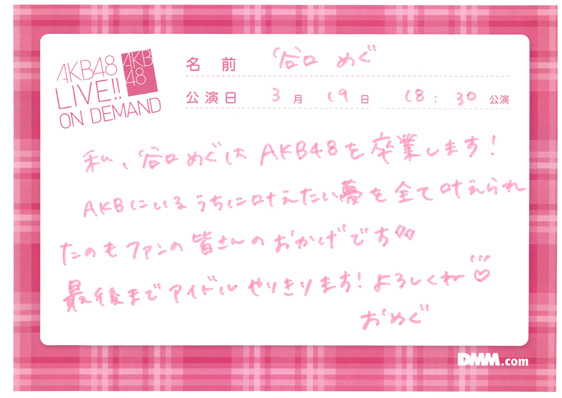 AKB48
LIVE!!
ON DEMAND
AKB
48
名 前 谷口 めぐ
公演日 3 月 19 日 18 : 30 公演
私、谷口めぐは AKB48を卒業します!
AKBにいるうちに叶えたい夢を全て叶えられ
たのもファンの皆さんのおかげです
最後までアイドルやりきります! よろしくね♡
おめぐ
DMM.com